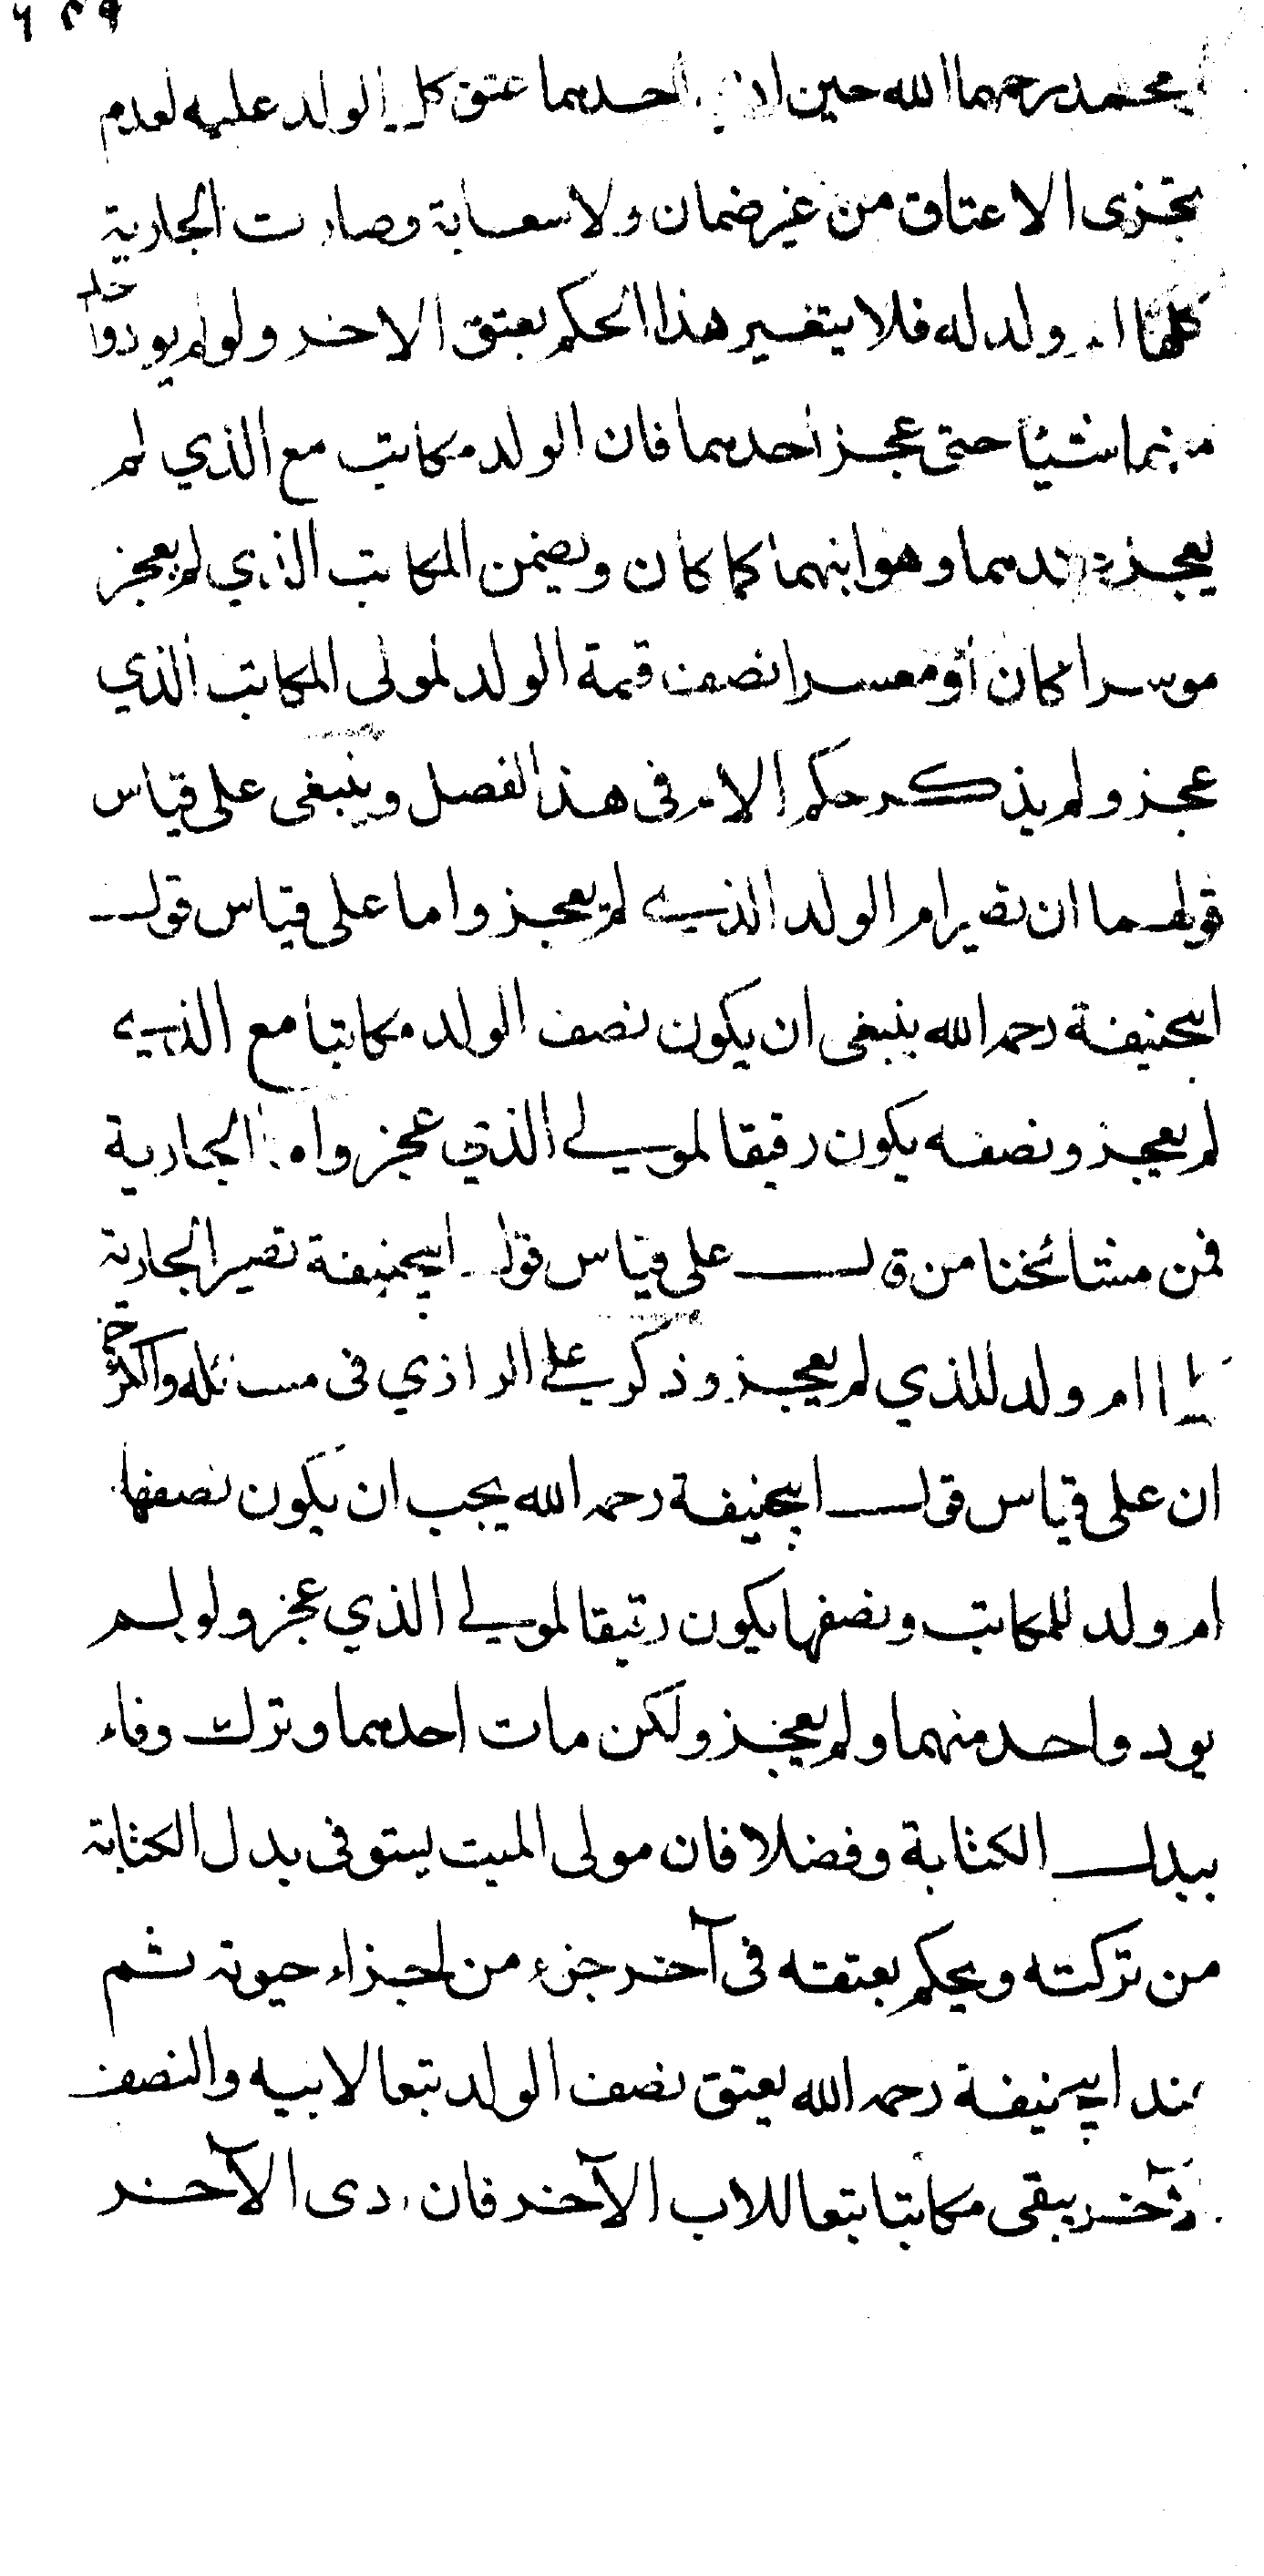 محمد رحمهما الله حين ادى احدهما عتق كل الولد عليه لعدم
تجزى الاعتاق من غير ضمان ولا سعاية وصارت الجارية
كلها ام ولد له فلا يتغير هذا الحكم بعتق الاخر ولو لم يود واحد
منهما شيئا حتى عجز احدهما فان الولد مكاتب مع الذي لم
يعجز عندهما وهو ابنهما كما كان ويضمن المكاتب الذي لم يعجز
موسرا كان أو معسرا نصف قيمة الولد لمولى المكاتب الذي
عجز ولم يذكر حكم الام فى هذا الفصل وينبغى على قياس
قولهما ان تصير ام الولد الذي لم يعجز واما على قياس قول
ابيحنيفة رحمه الله ينبغى ان يكون نصف الولد مكاتبا مع الذي
لم يعجز ونصفه يكون رقيقا لمولي الذي عجز واما الجارية
فمن مشائخنا من قال على قياس قول ابيحنيفة تصير الجارية
كلها ام ولد للذي لم يعجز وذكر علي الرازي فى مسئله
ان على قياس قول ابيحنيفة رحمه الله يجب ان يكون نصفها
ام ولد للمكاتب ونصفها يكون رقيقا لمولي الذي عجز ولو لم
يود واحد منهما ولم يعجز ولكن مات احدهما وترك وفاء
ببدل الكتابة وفضلا فان مولى الميت يستوفى بدل الكتابة
من تركته ويحكم بعتقه فى آخر جزء من اجزاء حيوته ثم
عند ابيحنيفة رحمه الله يعتق نصف الولد تبعا لابيه والنصف
الآخر يبقى مكاتبا تبعا للاب الآخر فان ادى الآخر